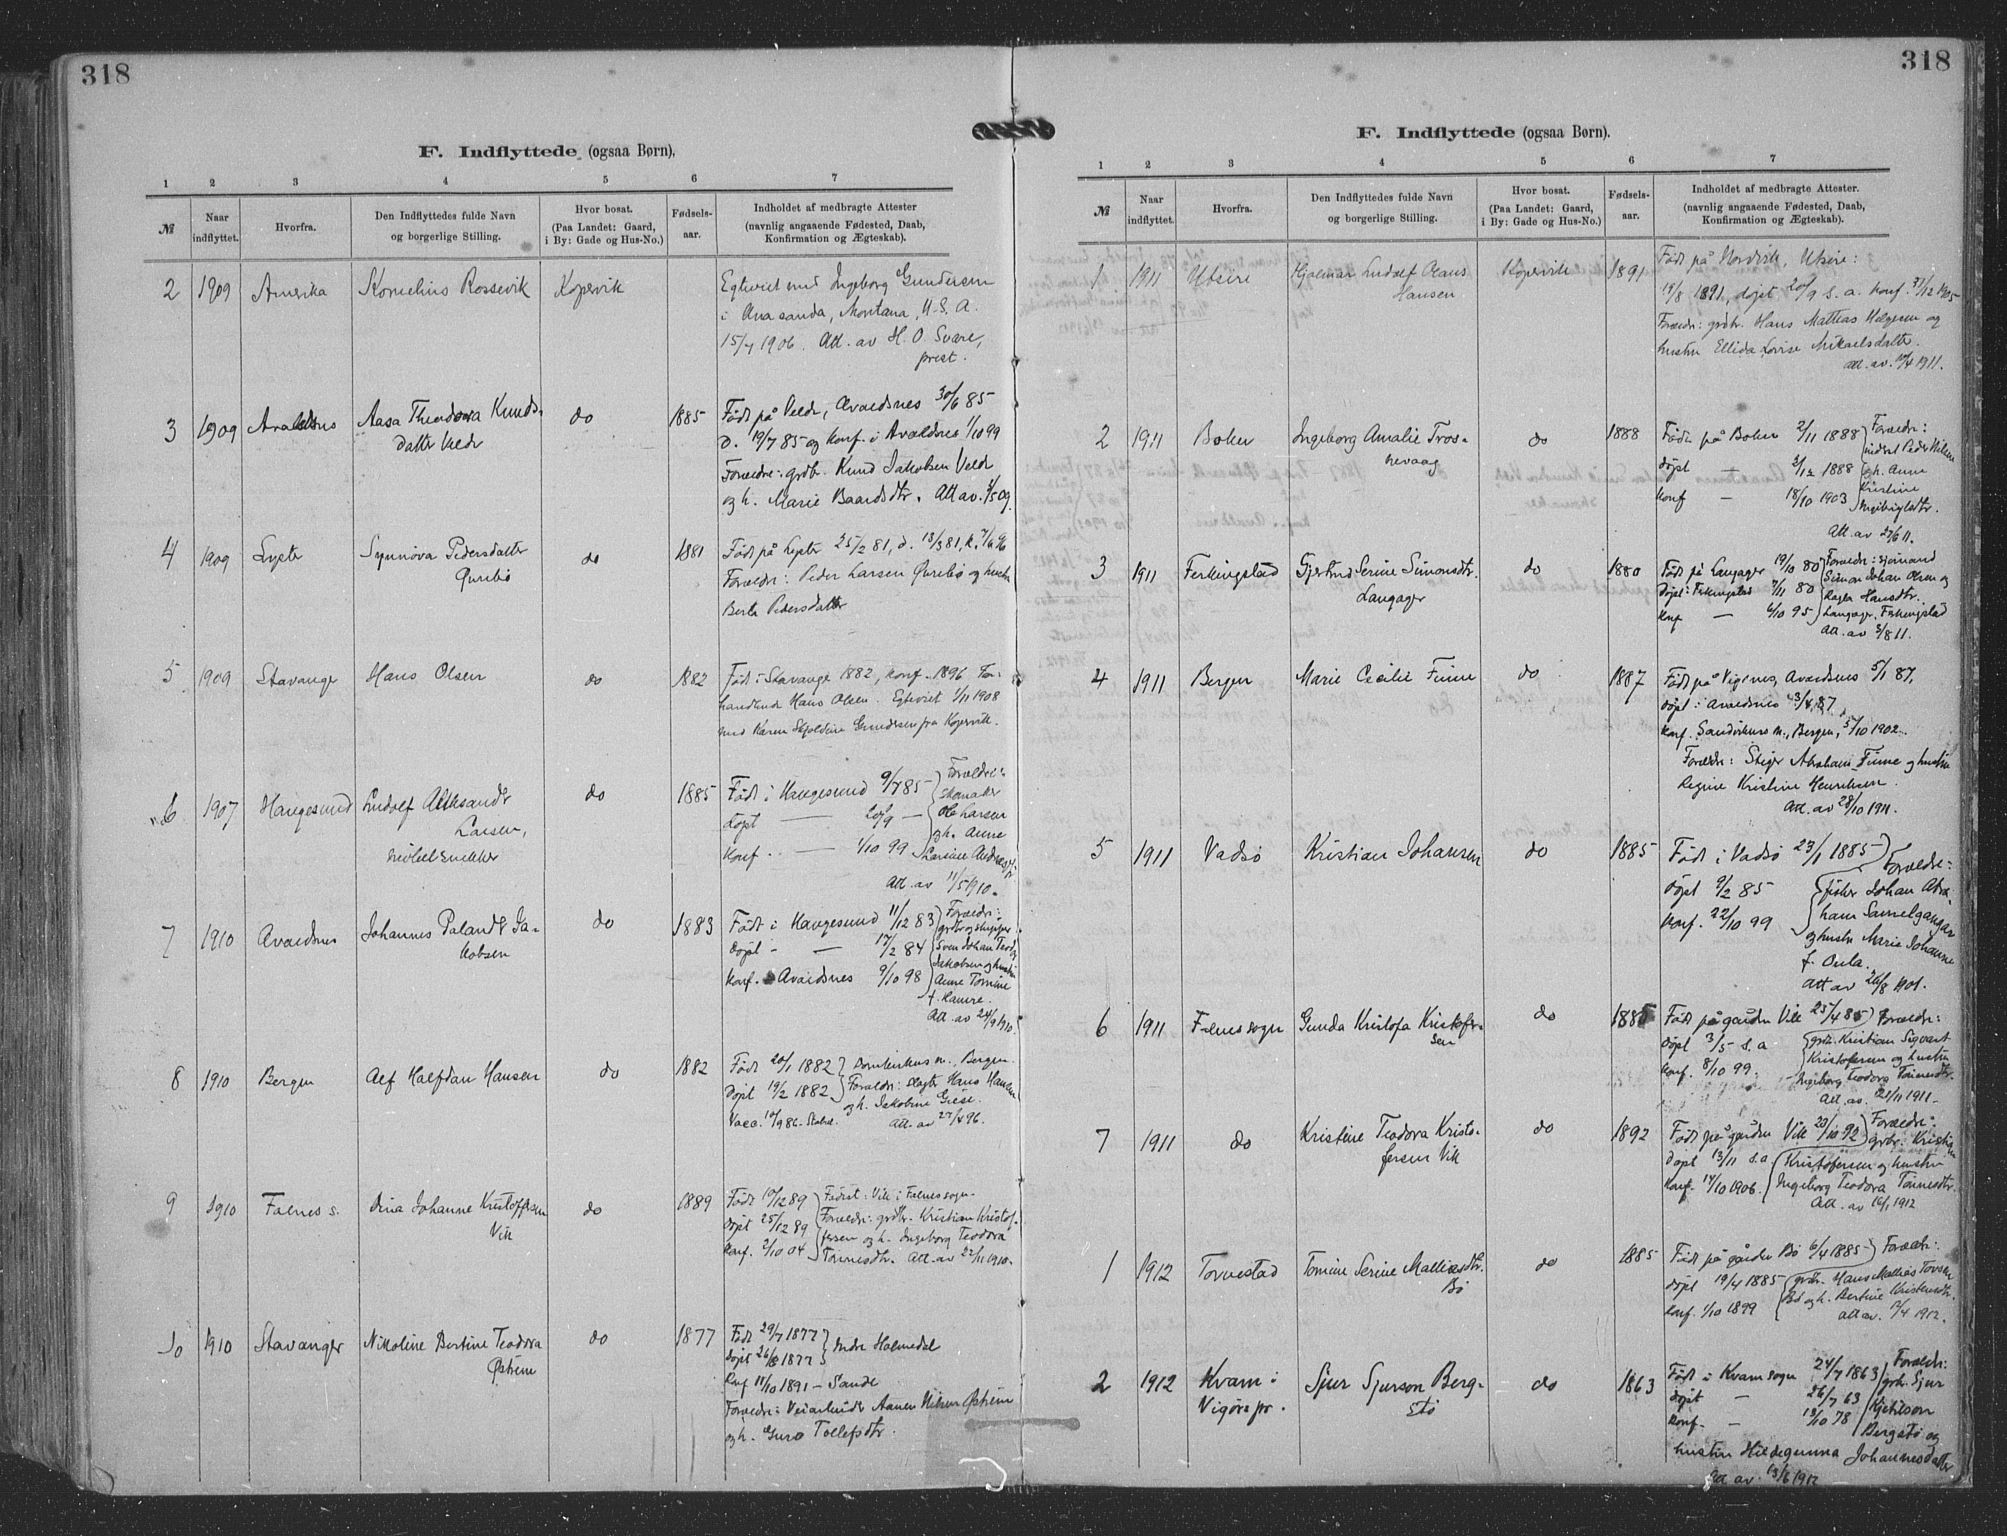 318
F. Indflyttede (ogsaa Børn).
1 2 3 4 5 6 7
№ Naar indflyttet. Hvorfra. Den Indflyttedes fulde Navn og borgerlige Stilling. Hvor bosat. (Paa Landet: Gaard, i By: Gade og Hus-No.) Fødsels-aar. Indholdet af medbragte Attester (navnlig angaaende Fødested, Daab, Konfirmation og Ægteskab).
2 1909 Amerika Kornelius Rossevik Kopervik Egteviet med Ingeborg Gundersen
i Anaconda, Montana, U.S.A.
15/7 1906. Att. av H. O. Svare,
prest.
3 1909 Avaldsnes Aasa Theodora Knuds- do 1885 Født på Velde, Avaldsnes 30/6 85
datter Velde D. 19/7 85 og konf. i Avaldsnes 1/10 99
Forældre: grdbr. Knud Jakobsen Velde
og h. Marie Baardsdtr. Att av. 1/5 09.
4 1909 Synnøva Pedersdatter do 1881 Født på 25/2 81, d. 13/3 81, k.
Forældre: Peder Larsen og hustru
Berta Pedersdatter
5 1909 Stavanger Hans Olsen do 1882 Født i Stavanger 1882, konf. 1896 For-
handlende Hans Olsen. Egteviet 1/11 1908
med Karen Skjoldine Gundersen fra Kopervik.
6 1907 Haugesund Ludolf Aleksander do 1885 Født i Haugesund 9/7 85 Forældre:
Larsen, Døpt — 20/9 — skomaker
Konf. — 1/10 99 Ole Larsen
og h. Anne
Larsine
Att. av 11/5 1910.
7 1910 Avaldsnes Johannes Palander Ja- do 1883 Født i Haugesund 11/12 83 Forældre:
kobsen Døpt — 17/2 84 grdbr og skipper
Konf. Avaldsnes 9/10 98 Sven Johan
Jakobsen og hustru
Anne Tomine
f. Ramre.
Att. av 24/9 1910.
8 1910 Bergen Alf Halfdan Hansen do 1882 Født 20/1 1882 Domkirkens m., Bergen.
Døpt 19/2 1882 Forældre: slagter Hans Hansen
og h. Jakobine Giese.
Vacc. Att. av 27/4 96.
9 1910 Falnes s. Dina Johanne Kristoffersen do 1889 Født 10/12 89 Fødest: Vik i Falnes sogn
Vik Døpt 25/12 89 Forældre: grdbr. Kristian Kristof-
Konf. 2/10 04 fersen og h. Ingeborg Teodora
Tønnesdtr. Att. av 22/11 1910.
10 1910 Stavanger Nikoline Bertine Teodora do 1877 Født 29/7 1877 Indre Holmedal
Østrem Døpt 26/8 1877
Konf 11/10 1891 — Sande
Forældre: Veiarbeider Aanen Nilsen Østrem
og h. Guro Tollefsdtr.
318
F. Indflyttede (ogsaa Børn).
1 2 3 4 5 6 7
№ Naar indflyttet. Hvorfra. Den Indflyttedes fulde Navn og borgerlige Stilling. Hvor bosat. (Paa Landet: Gaard, i By: Gade og Hus-No.) Fødsels-aar. Indholdet af medbragte Attester. (navnlig angaaende Fødested, Daab, Konfirmation og Ægteskab).
1 1911 Utsire Hjalmar Ludolf Olaus Kopervik 1891 Født på Nordvik, Utsire:
Hansen 19/8 1891, døpt 20/9 s. a. konf. 31/12 1905
Forældr: grdbr. Hans Mattias Helgesen og
hustru Ellida Lovise Mikaelsdatter.
Att. av. 10/4 1911.
2 1911 Boken Ingeborg Amalie Tros- do 1888 Født på Boken 2/11 1888 Forældre:
nevaag døpt — 2/12 1888 inderst Peder Nilsen
konf — 18/10 1903 og h. Anne
Kristine
Att. av 27/6 11.
3 1911 Ferkingstad Gjertrud Serine Simonsdtr. do 1880 Født på Langager 19/10 80 Forældre: sjømand
Langager Døpt: Ferkingstad 7/11 80 Simon Johan Olsen og
Konf — 6/10 95 Ragla Hansdtr.
Langager, Ferkingstad
Att. av 3/8 11.
4 1911 Bergen Marie Cecilie Finne do 1887 Født på Vignes, Avaldsnes 5/1 87,
døpt i Avaldsnes 3/4 87
konf. Sandvikens m., Bergen, 5/10 1902.
Forældre: Stiger Abraham Finne og hustru
Regine Kristine Henriksen.
Att. av 28/10 1911.
5 1911 Vadsø Kristian Johansen do 1885 Født i Vadsø 23/1 1885 Forældre:
døpt 9/2 85 fisker Johan Abra-
Konf. 22/10 99 ham
og hustru Marie Johanne
f. Oula.
Att av 26/8 1901.
6 1911 Falnes sogn Gunda Kristofa Kristofer- do 1885 Født på gården Vik 23/4 85 Forældre:
sen Døpt 3/5 s.a grdbr. Kristian Sigvart
Konf. 8/10 99. Kristofersen og hustru
Ingeborg Teodora Tønnesdtr.
Att. av. 21/11 1911.
7 1911 do Kristine Teodora Kristo- do 1892 Født på gården Vik 20/10 92 Forældre:
fersen Vik Døpt 13/11 s.a grdbr. Kristian
Konf. 14/10 1906. Kristofersen og hustru
Ingeborg Teodora Tønnesdtr.
Att. av 16/1 1912
1 1912 Torvestad Tomine Serine Mattiasdtr. do 1885 Født på gården Bø 6/4 1885 Forældr:
Bø døpt 19/4 1885 grdbr. Hans Mattias
Konf. 1/10 1899 Bø og h. Bertine Kristensdtr.
Att av. 9/4 1912.
2 1912 Kvam i Sjur Sjurson Berg- do 1863 Født i Kvam sogn 24/7 1863 Forældr:
Vigørs pr. stø døpt — 26/7 63 grbr. Sjur
konf. — 13/10 78 Kjetilson
Bergstø og
hustru Hildegunna Johannesdatter
Att av. 13/6 1912